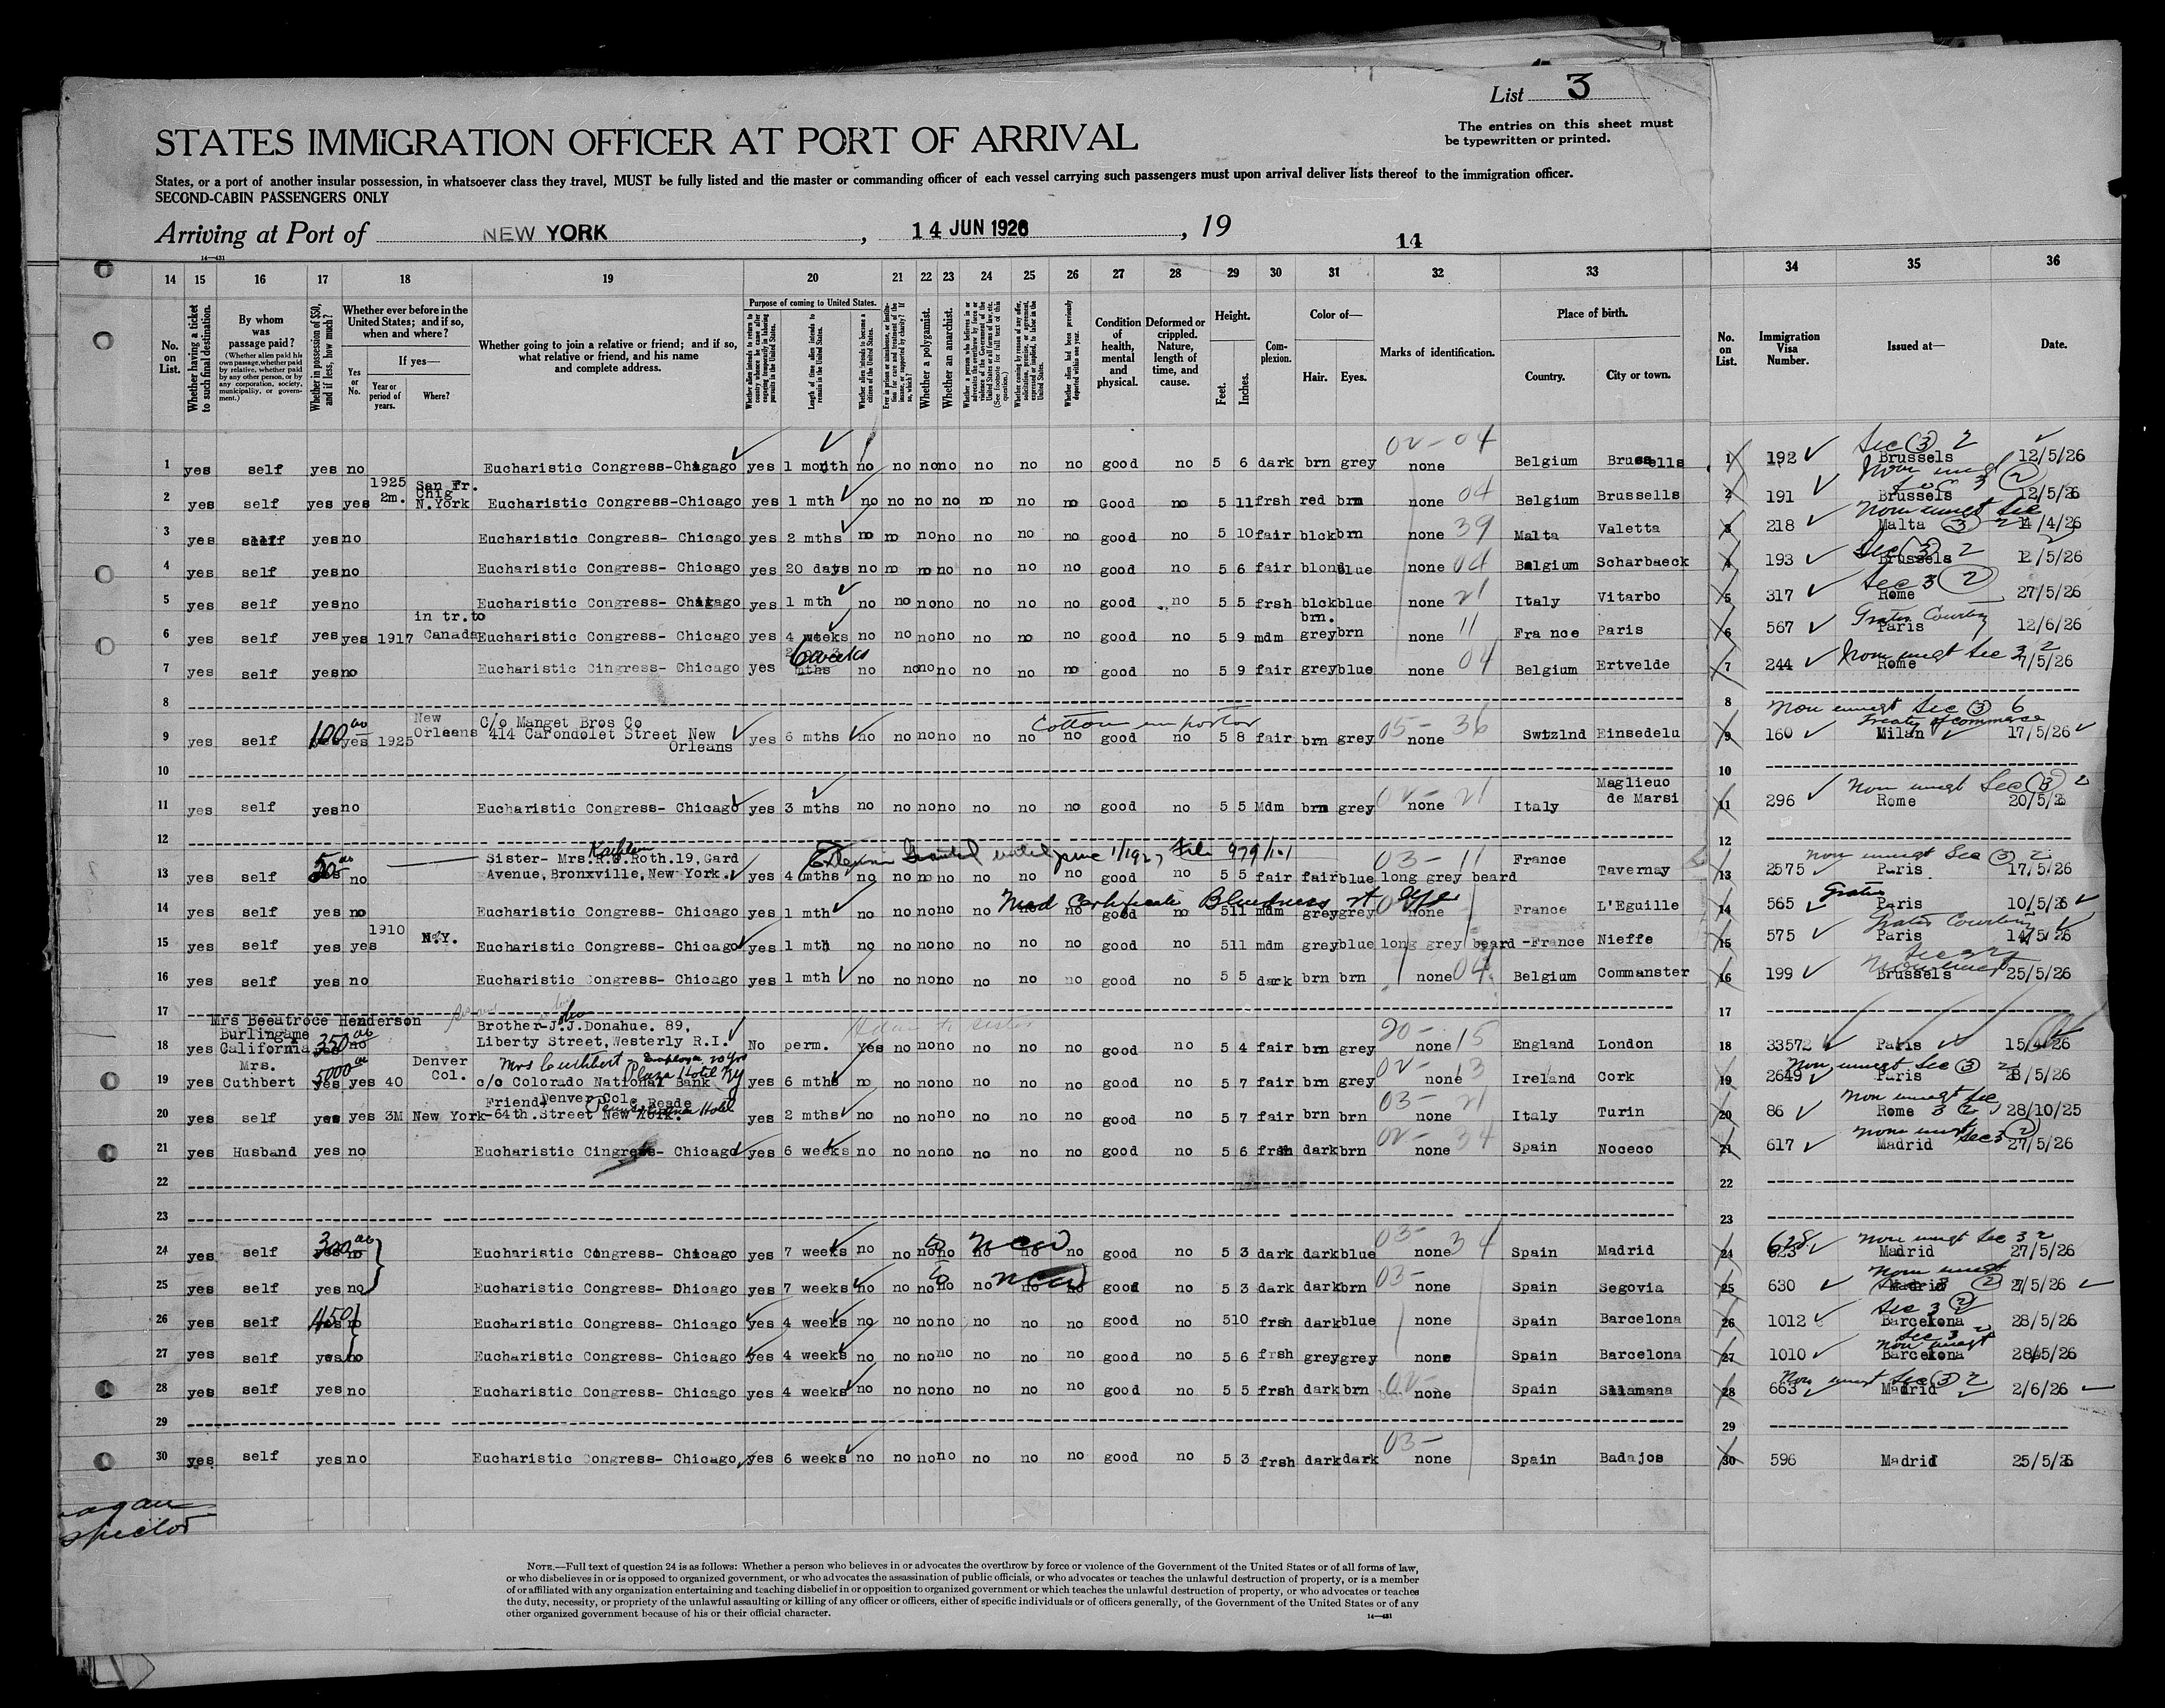 List 3
The entries on this sheet must
be typewritten or printed.
STATES IMMIGRATION OFFICER AT PORT OF ARRIVAL
States, or a port of another insular possession, in whatsoever class they travel, MUST be fully listed and the master or commanding officer of each vessel carrying such passengers must upon arrival deliver lists thereof to the immigration officer.
SECOND-CABIN PASSENGERS ONLY
Arriving at Port of NEW YORK, 14 JUN 1926, 19
14
14—431
14 15 16 17 18 19 20 21 22 23 24 25 26 27 28 29 30 31 32 33 34 35 36
No. on List.
Whether having a ticket to such final destination.
By whom was passage paid?
(Whether alien paid his own passage, whether paid by relative, whether paid by any other person, or by any corporation, society, municipality, or government.)
Whether in possession of $50, and if less, how much?
Whether ever before in the United States; and if so, when and where?
If yes—
Yes or No.
Year or period of years.
Where?
Whether going to join a relative or friend; and if so, what relative or friend, and his name and complete address.
Purpose of coming to United States.
Whether alien intends to return to country whence he came after engaging temporarily in laboring pursuits in the United States.
Length of time alien intends to remain in the United States.
Whether alien intends to become a citizen of the United States.
Whether a polygamist.
Whether an anarchist.
Whether alien had been previously deported within one year.
Condition of health, mental and physical.
Deformed or crippled. Nature, length of time, and cause.
Height.
Feet.
Inches.
Complexion.
Color of—
Hair.
Eyes.
Marks of identification.
Place of birth.
Country.
City or town.
No. on List.
Immigration Visa Number.
Issued at—
Date.
02-04 Sec (3) 2
1 yes self yes no Eucharistic Congress-Chicago yes 1 month no no no no no no no good no 5 6 dark brn grey none Belgium Brussells 1 192 Brussels 12/5/26
1925 San Fr.
2m. Chig
2 yes self yes yes N.York Eucharistic Congress-Chicago yes 1 mth no no no no no no no Good no 5 11 frsh red brn none 04 Belgium Brussells 2 191 Brussels 12/5/26
3 yes self yes no Eucharistic Congress- Chicago yes 2 mths no no no no no no no good no 5 10 fair blck brn none 39 Malta Valetta 3 218 Malta (3) 2 14/4/26
4 yes self yes no Eucharistic Congress- Chicago yes 20 days no no no no no no no good no 5 6 fair blond blue none 04 Belgium Scharbaeck 4 193 Brussels 12/5/26
Sec 3 (2)
5 yes self yes no Eucharistic Congress- Chicago yes 1 mth no no no no no no no good no 5 5 frsh blck blue none 21 Italy Vitarbo 5 317 Rome 27/5/26
in tr.to brn.
6 yes self yes yes 1917 Canada Eucharistic Congress- Chicago yes 4 weeks no no no no no no no good no 5 9 mdm grey brn none 11 Fra nce Paris 6 567 Paris 12/6/26
6 weeks
7 yes self yes no Eucharistic Cingress- Chicago yes mths no no no no no no no good no 5 9 fair grey blue none 04 Belgium Ertvelde 7 244 Rome 7/5/26
8 8
Non immgt Sec (3) 6
New C/o Manget Bros Co Cotton importer Treaty of commerce
9 yes self 100 yes 1925 Orleans 414 Carondolet Street New yes 6 mths no no no no no no no good no 5 8 fair brn grey 05- none 36 Swtzlnd Einsedelu 9 160 Milan 17/5/26
Orleans
10 10
Maglieuo Non immgt Sec (3) 2
11 yes self yes no Eucharistic Congress- Chicago yes 3 mths no no no no no no no good no 5 5 Mdm brn grey 02- none 21 Italy de Marsi 11 296 Rome 20/5/26
12 12
Kathleen
50 Sister- Mrs.R.J.Roth.19,Gard Extension Granted until June 1/1927 File 979/101 03-11 France Non immgt Sec (3) 2
13 yes self yes no Avenue,Bronxville,New York. yes 4 mths no no no no no no no good no 5 5 fair fair blue long grey beard Tavernay 13 2575 Paris 17/5/26
Med Certificate Blindness rt eye Gratis
14 yes self yes no Eucharistic Congress- Chicago yes 1 mth no no no no no no no good no 5 11 mdm grey grey none France L'Eguille 14 565 Paris 10/5/26
1910
15 yes self yes yes N.Y. Eucharistic Congress- Chicago yes 1 mth no no no no no no no good no 5 11 mdm grey blue long grey beard -France Nieffe 15 575 Paris 14/5/26
16 yes self yes no Eucharistic Congress- Chicago yes 1 mth no no no no no no no good no 5 5 dark brn brn none 04 Belgium Commanster 16 199 Brussels 25/5/26
17
Mrs Beeatroce Henderson
Burlingame 350 Brother-J.J.Donahue. 89,
18 yes California yes no Liberty Street,Westerly R.I. No perm. Yes no no no no no no good no 5 4 fair brn grey 20- none 15 England London 18 33572 Paris 15/4/26
Mrs. 5000 Denver Mrs Cuthbert Plaza Hotel NY
19 yes Cuthbert yes yes 40 Col. c/o Colorado National Bank yes 6 mths no no no no no no no good no 5 7 fair brn grey 02- none 13 Ireland Cork 19 2649 Paris 8/5/26
Denver Col
Friend- C Reade Non immgt Sec
20 yes self yes yes 3M New York -64th.Street New York. yes 2 mths no no no no no no no good no 5 7 fair brn brn 03- none 21 Italy Turin 20 86 Rome 3 2 28/10/25
21 yes Husband yes no Eucharistic Cingress- Chicago yes 6 weeks no no no no no no no good no 5 6 frsh dark brn 02- none 34 Spain Noceco 21 617 Madrid 27/5/26
22 22
23 23
300 03- 628 Non immgt Sec 3 2
24 yes self yes no Eucharistic Congress- Chicago yes 7 weeks no no no no no no no good no 5 3 dark dark blue none 34 Spain Madrid 24 623 Madrid 27/5/26
25 yes self yes no Eucharistic Congress- Dhicago yes 7 weeks no no no no no no no good no 5 3 dark dark brn 03- none Spain Segovia 25 630 Madrid 27/5/26
450 Sec 3 (2)
26 yes self yes no Eucharistic Congress- Chicago yes 4 weeks no no no no no no no good no 5 10 frsh dark blue none Spain Barcelona 26 1012 Barcekona 28/5/26
27 yes self yes no Eucharistic Congress- Chicago yes 4 weeks no no no no no no no good no 5 6 frsh grey grey none Spain Barcelona 27 1010 Barcekona 28/5/26
Non immgt Sec (3) 2
28 yes self yes no Eucharistic Congress- Chicago yes 4 weeks no no no no no no no good no 5 5 frsh dark brn 02- none Spain Slamana 28 663 Madrid 2/6/26
29 29
03-
30 yes self yes no Eucharistic Congress- Chicago, yes 6 weeks no no no no no no no good no 5 3 frsh dark dark none Spain Badajos 30 596 Madrid 25/5/26
NOTE.—Full text of question 24 is as follows: Whether a person who believes in or advocates the overthrow by force or violence of the Government of the United States or of all forms of law,
or who disbelieves in or is opposed to organized government, or who advocates the assassination of public officials, or who advocates or teaches the unlawful destruction of property, or is a member
of or affiliated with any organization entertaining and teaching disbelief in or opposition to organized government or which teaches the unlawful destruction of property, or who advocates or teaches
the duty, necessity, or propriety of the unlawful assaulting or killing of any officer or officers, either of specific individuals or of officers generally, of the Government of the United States or of any
other organized government because of his or their official character.
14—431